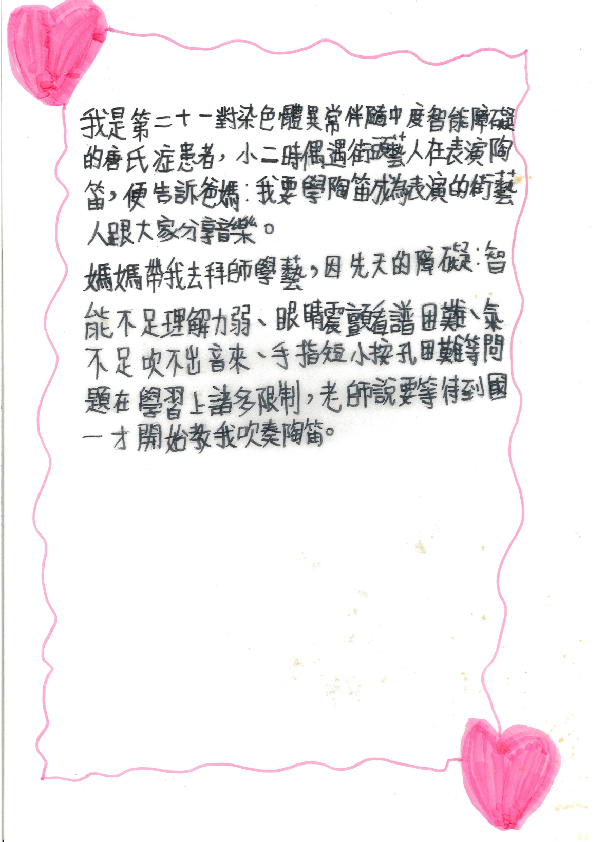 我是第二十一對染色體異常伴隨中度智能障礙
的唐氏症患者，小二時偶遇街頭藝人在表演陶
笛，便告訴爸媽：我要學陶笛成為表演的街藝
人跟大家分享音樂。
媽媽帶我去拜師學藝，因先天的障礙：智
能不足理解力弱、眼睛震顫看譜困難、氣
不足吹不出音來、手指短小按孔困難等問
題在學習上諸多限制，老師說要等待到國
一才開始教我吹奏陶笛。